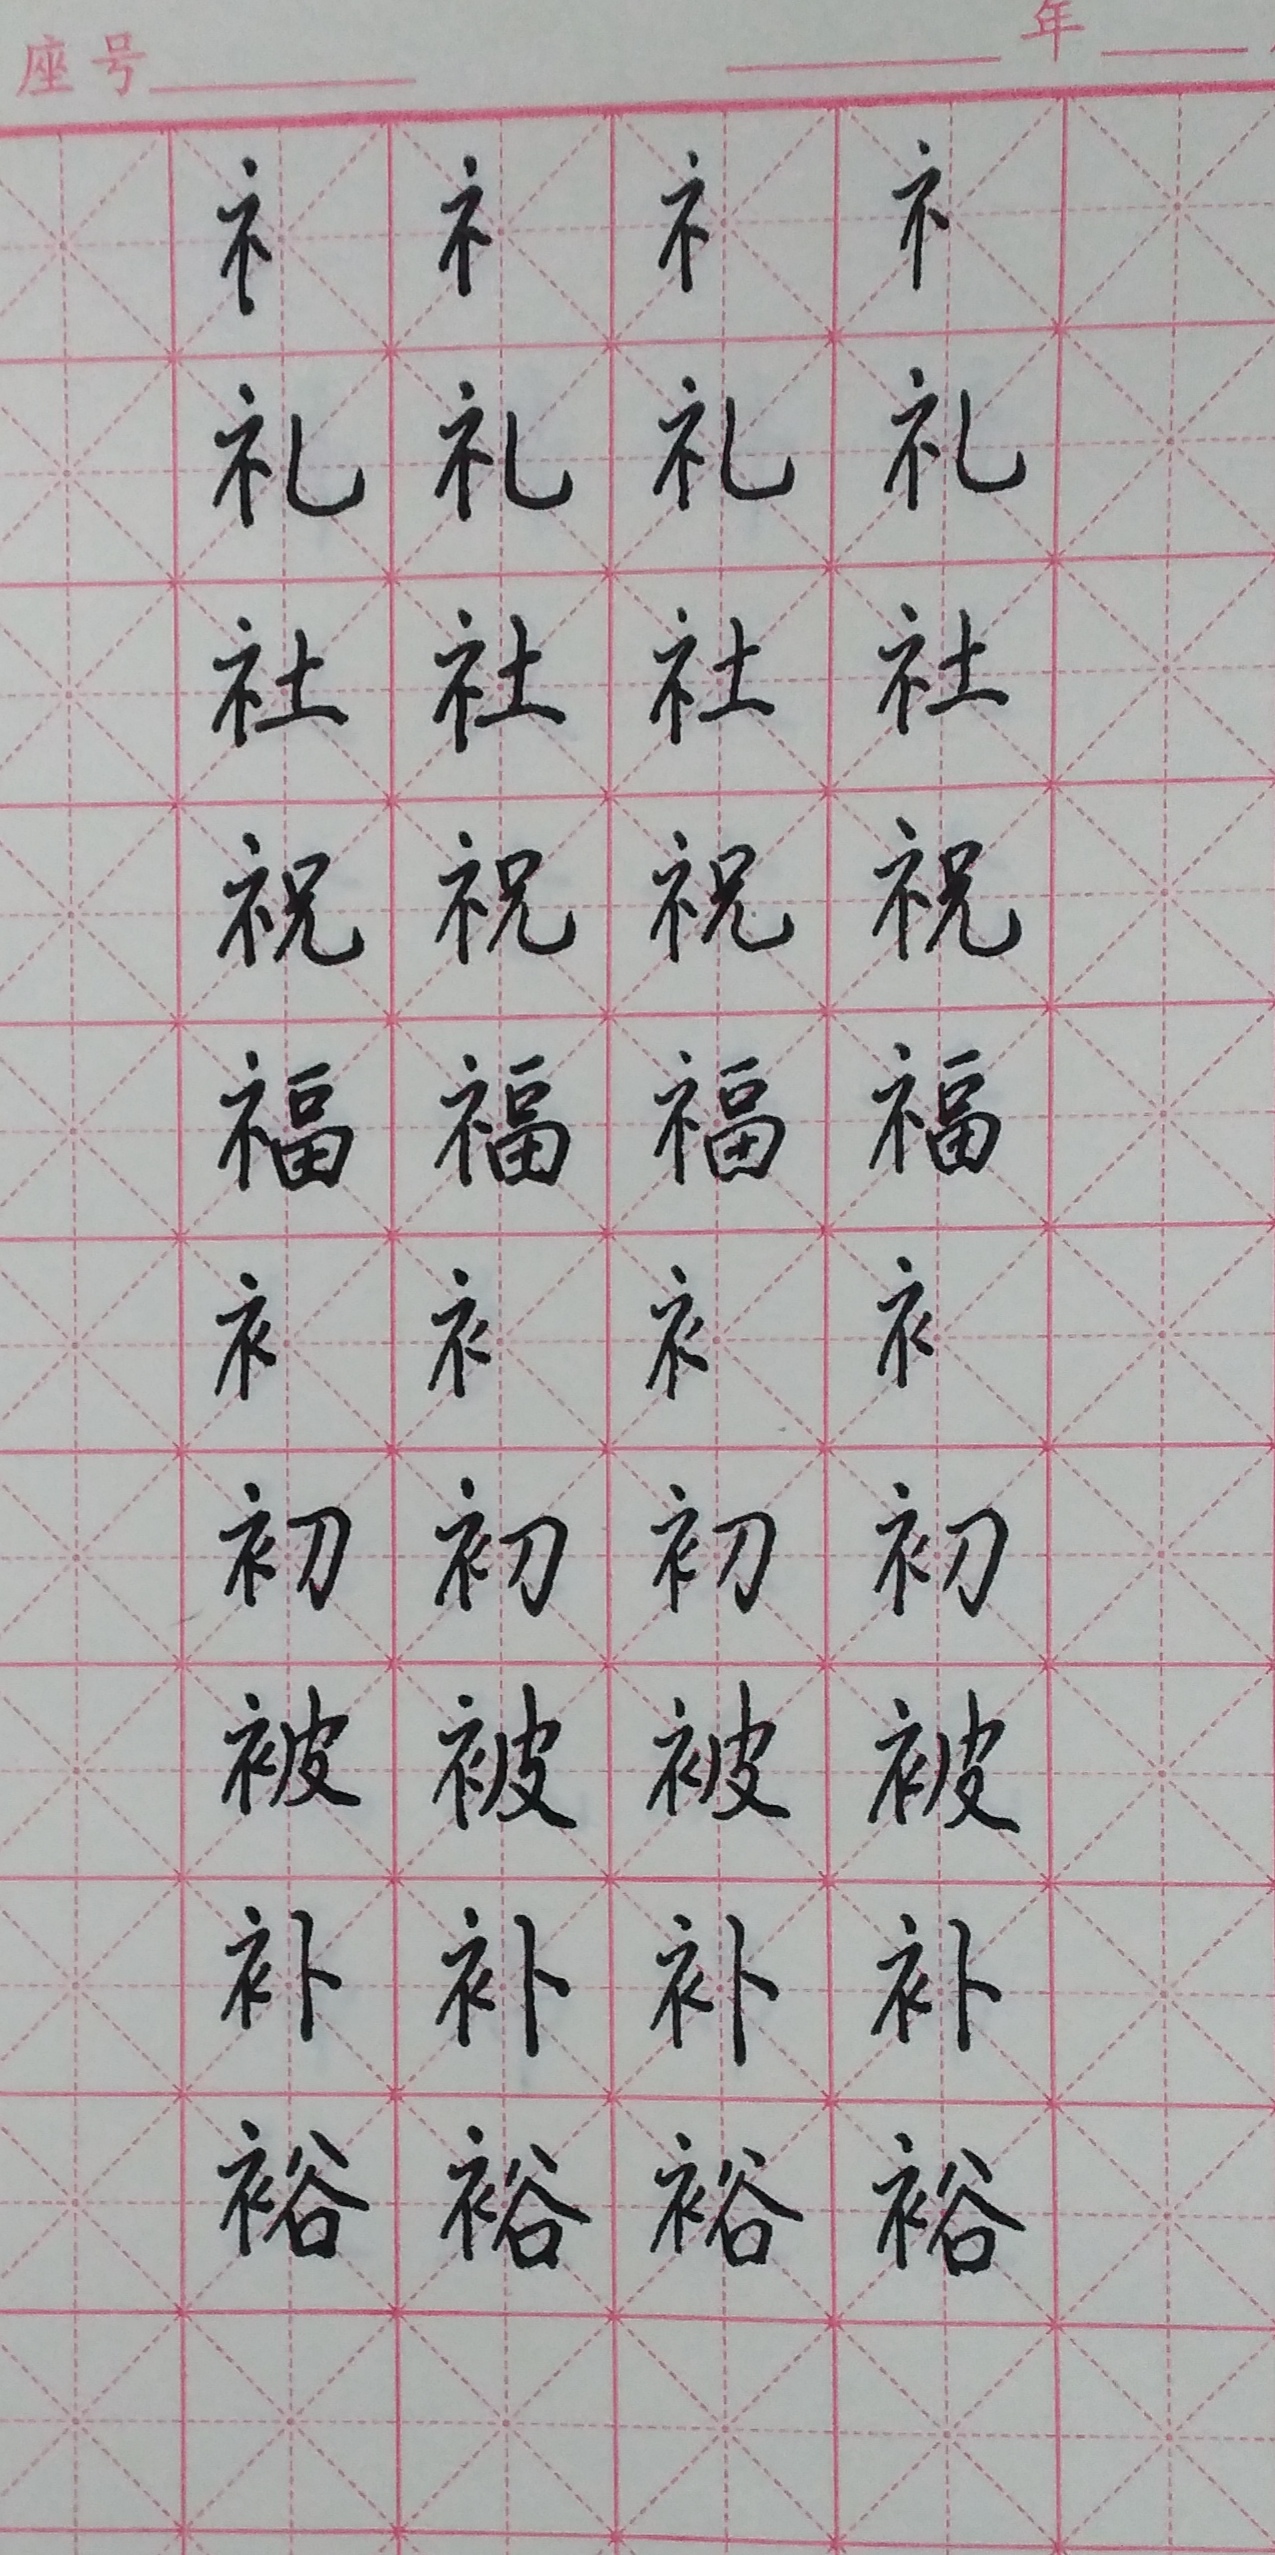 座号 年
礻 礻 礻 礻
礼 礼 礼 礼
社 社 社 社
祝 祝 祝 祝
福 福 福 福
衤 衤 衤 衤
初 初 初 初
被 被 被 被
补 补 补 补
裕 裕 裕 裕